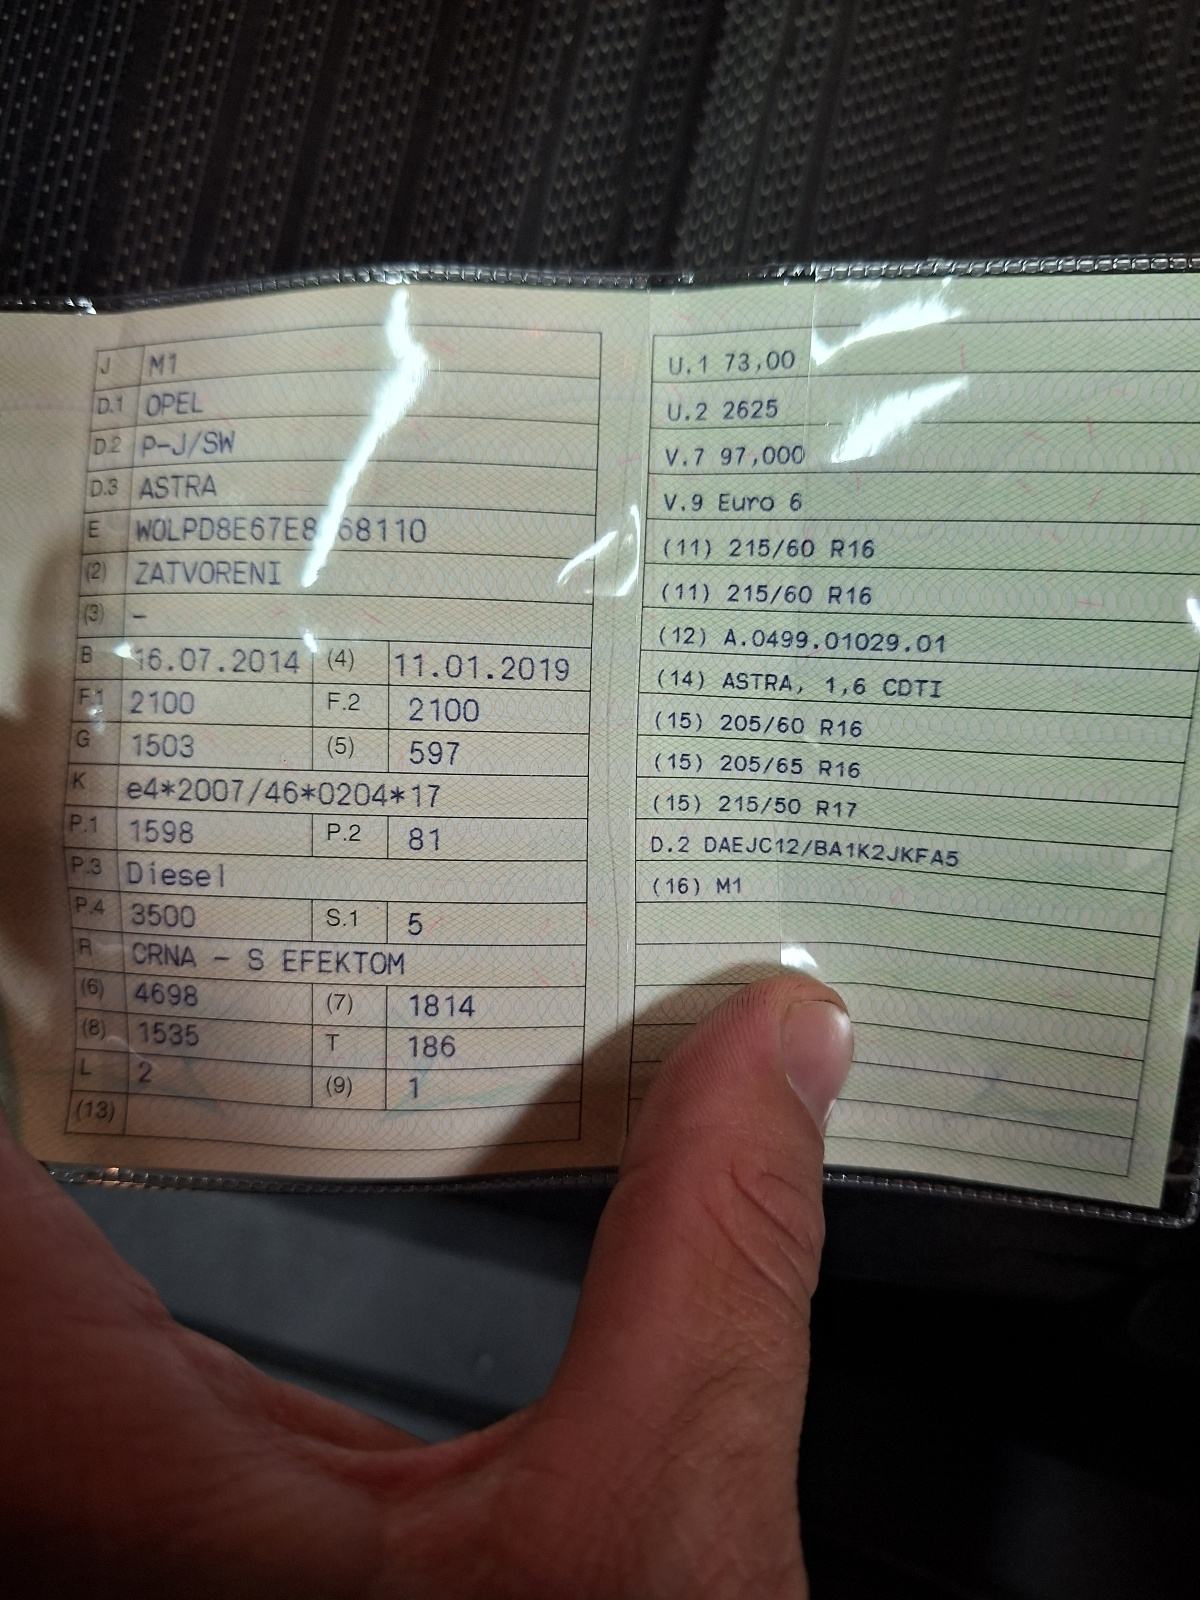 J M1
D.1 OPEL
D.2 P-J/SW
D.3 ASTRA
E
(2) ZATVORENI
(3) –
B 16.07.2014 (4) 11.01.2019
F.1 2100 F.2 2100
G 1503 (5) 597
K e4*2007/46*0204*17
P.1 1598 P.2 81
P.3 Diesel
P.4 3500 S.1 5
R CRNA – S EFEKTOM
(6) 4698 (7) 1814
(8) 1535 T 186
L 2 (9) 1
(13)
U.1 73,00
U.2 2625
V.7 97,000
V.9 Euro 6
(11) 215/60 R16
(11) 215/60 R16
(12) A.0499.01029.01
(14) ASTRA, 1,6 CDTI
(15) 205/60 R16
(15) 205/65 R16
(15) 215/50 R17
D.2 DAEJC12/BA1K2JKFA5
(16) M1